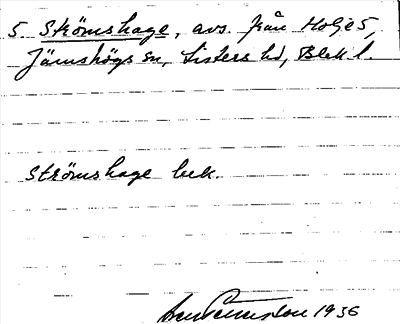 5 Strömshage, avs. från Holje 5,
Jämshögs sn, Listers hd, Blek l.
Strömshage bek.
1936